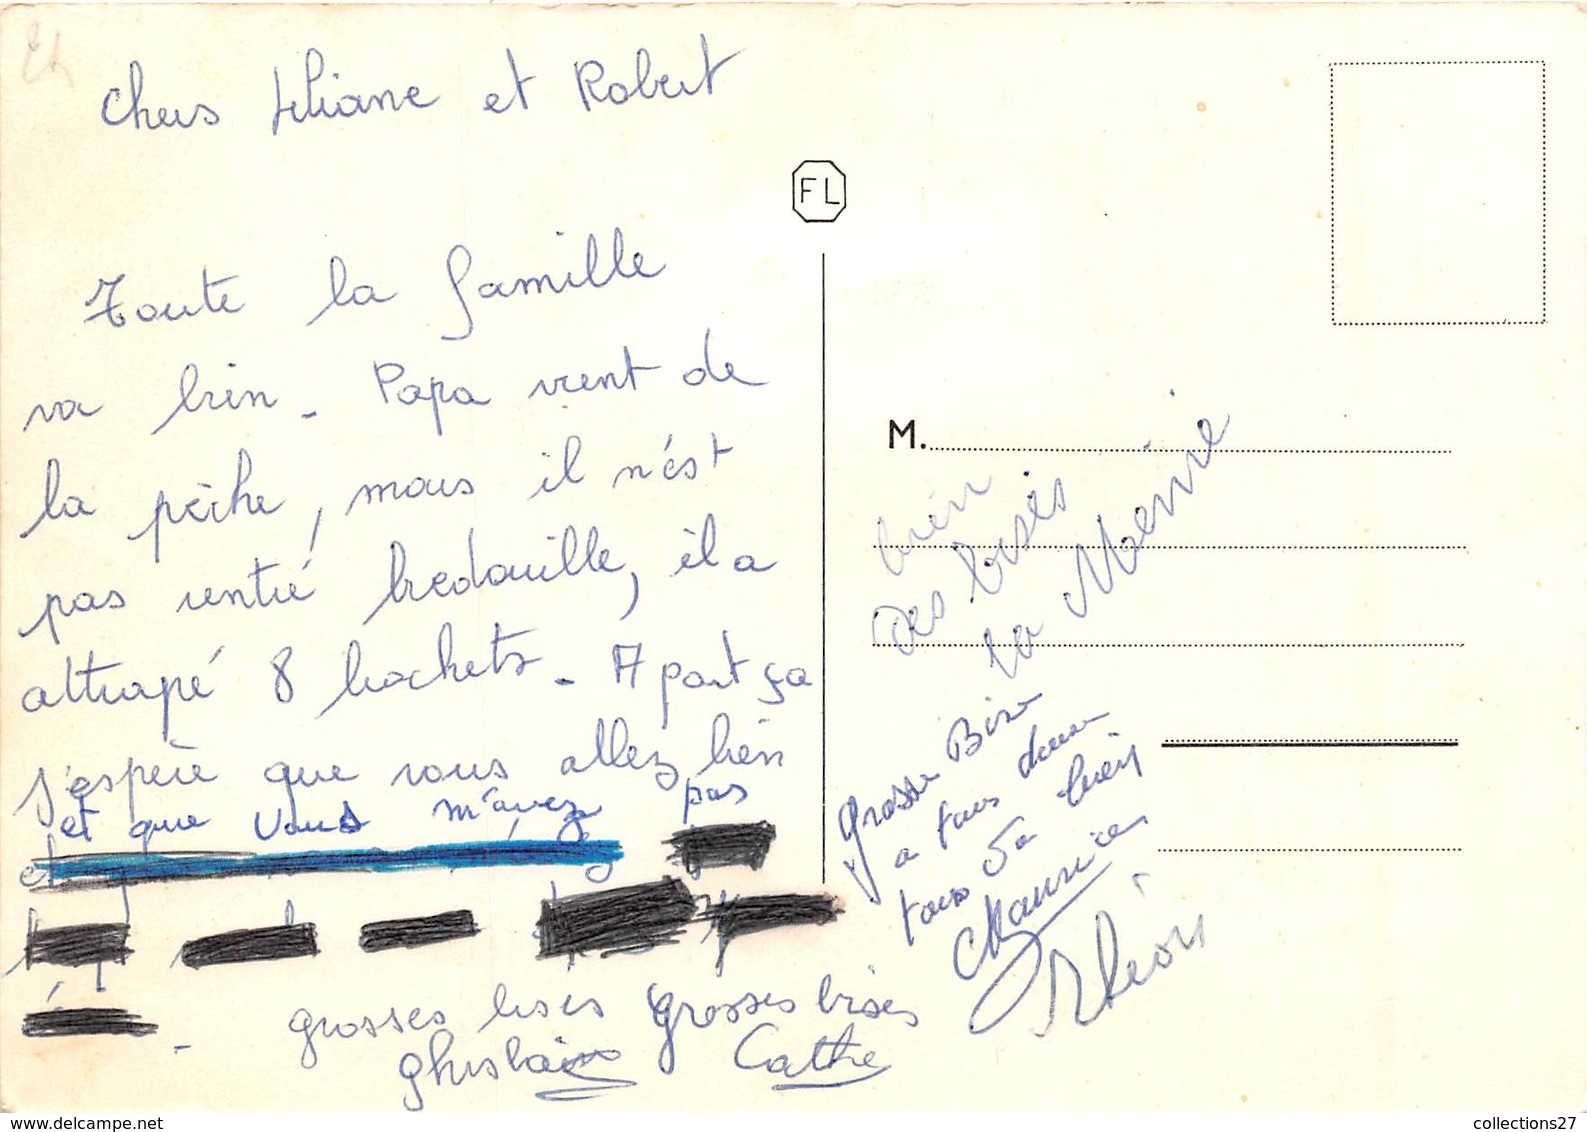 Chers Liliane et Robert
FL
Toute la famille
va bien. Papa vient de
la pèche, mais il n'ést
pas rentré bredouille, il a
attrapé 8 brochets. A part ça
J'espère que vous allez bien
et que vous m'avez pas
grosses bises grosses bises
Ghislaine Cathe
M.
bien
des bises
la Mémé
grosse Bise
a tous deux
tous va bien
Maurice
collections27